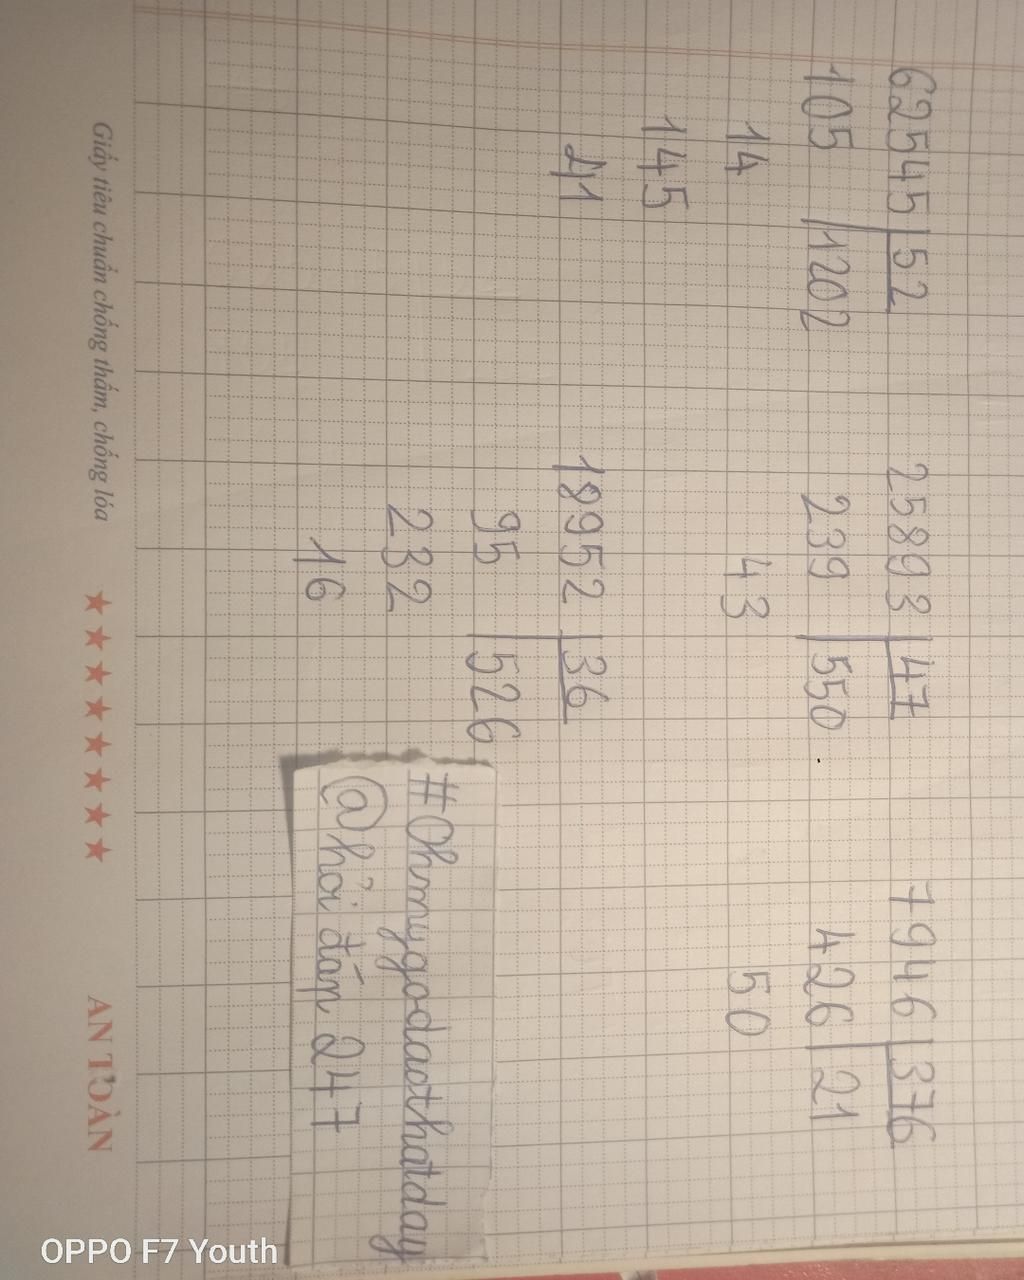 62545 52 25893 47 7946 376
105 1202 239 550 426 21
14 43 50
145
41 18952 36
95 526
232 #Ohmygodaothatday
16 @hỏi đáp 247
Giấy tiêu chuẩn chống thấm, chống lóa AN TOÀN
OPPO F7 Youth